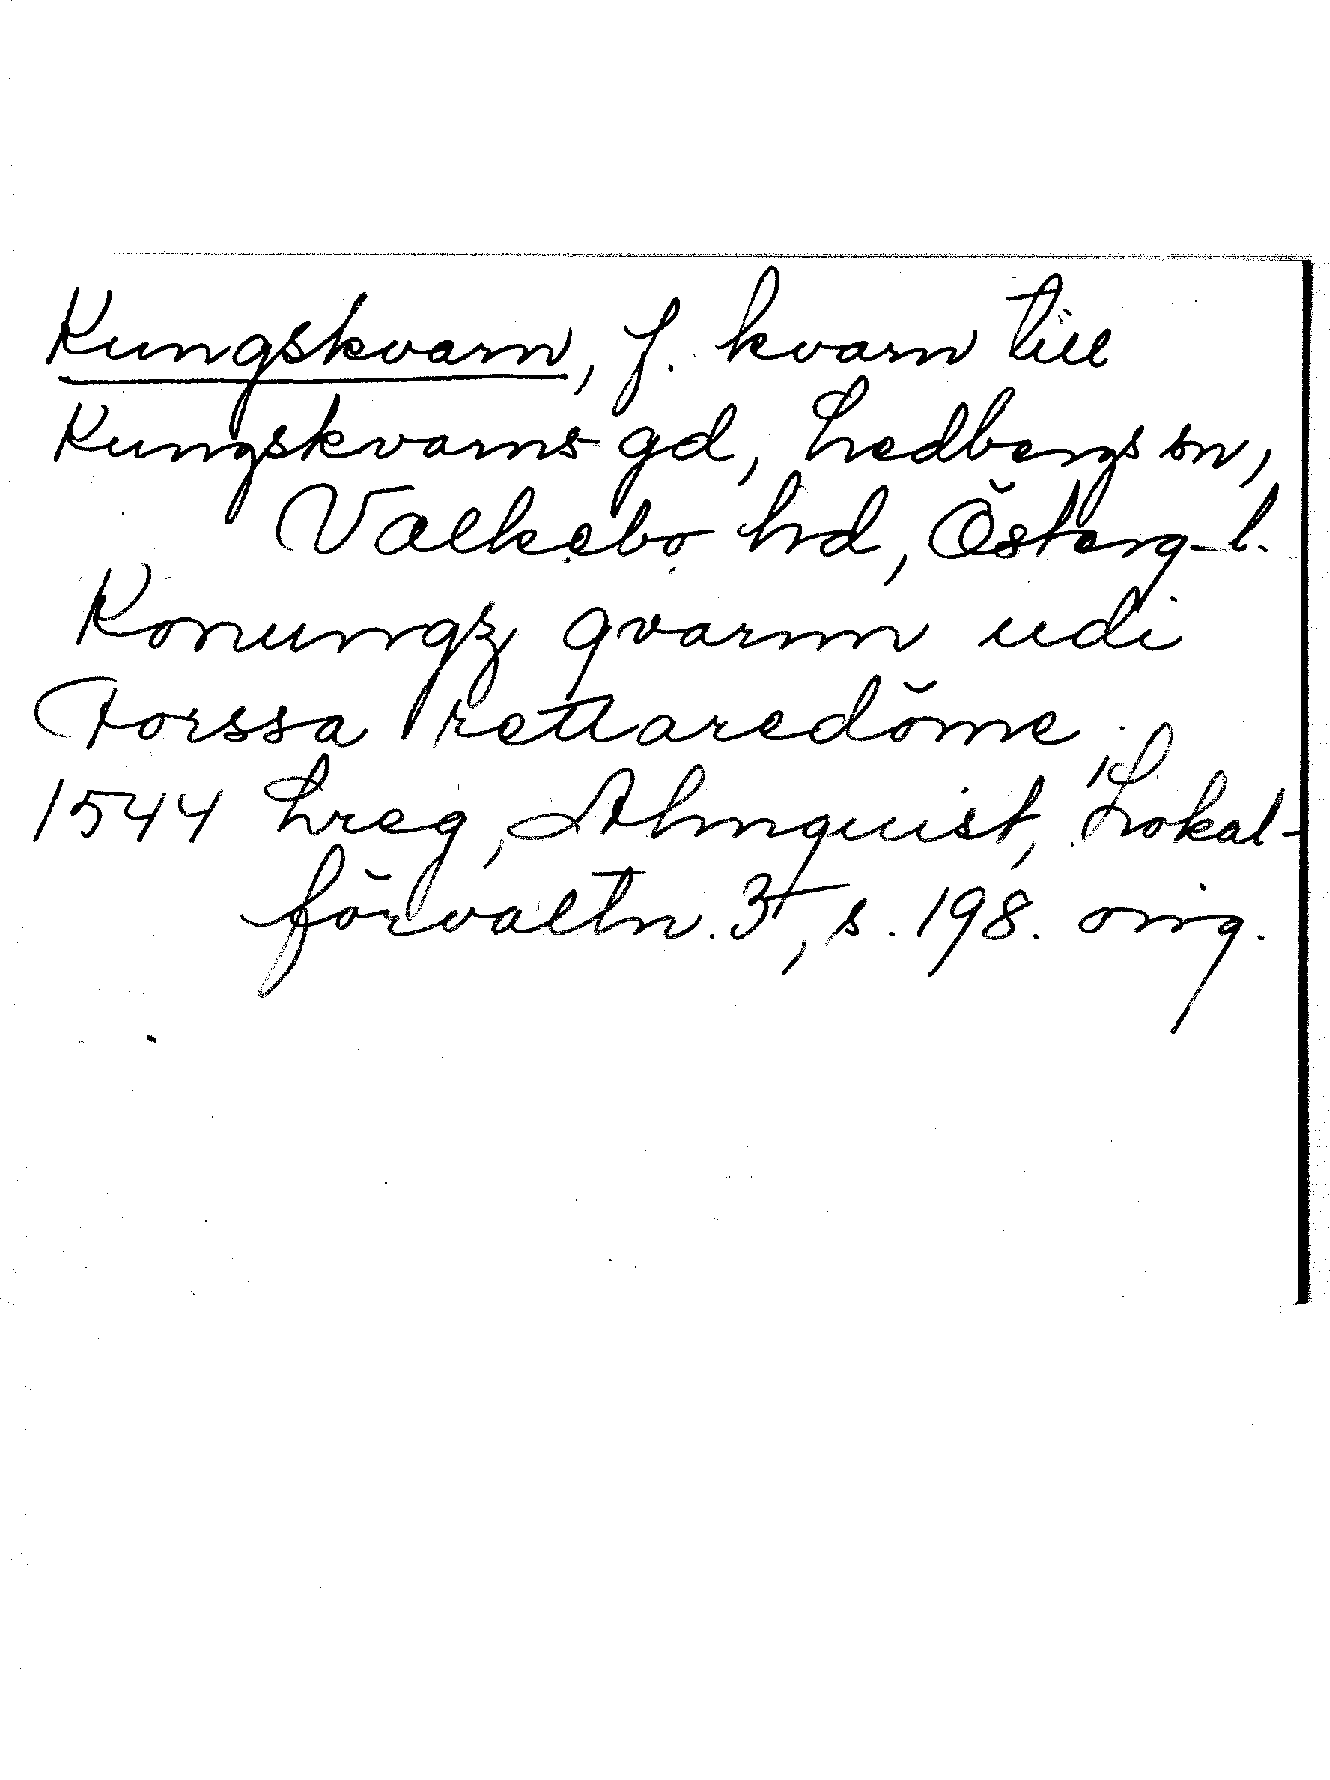 Kungskvarn, f. kvarn till
Kungskvarns gd, Ledbergs sn,
Valkebo hd, Österg-l.
Konungz qvarnn udi
Forssa rettaredöme
1544 Lreg, Almquist, Lokal-
förvaltn. 3, s. 198. orig.